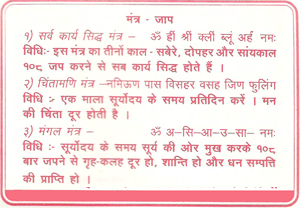 मंत्र - जाप
१) सर्व कार्य सिद्ध मंत्र – ॐ हीं श्रीं क्लीं ब्लूं अर्हं नमः
विधिः- इस मंत्र का तीनों काल - सबेरे, दोपहर और सांयकाल
१०८ जप करने से सब कार्य सिद्ध होते हैं ।
२) चिंतामणि मंत्र –नमिऊण पास विसहर वसह जिण फुलिंग
विधि :- एक माला सूर्योदय के समय प्रतिदिन करें । मन
की चिंता दूर होती है ।
३) मंगल मंत्र – ॐ अ–सि–आ–उ–सा– नमः
विधिः- सूर्योदय के समय सूर्य की ओर मुख करके १०८
बार जपने से गृह-कलह दूर हो, शान्ति हो और धन सम्पत्ति
की प्राप्ति हो ।